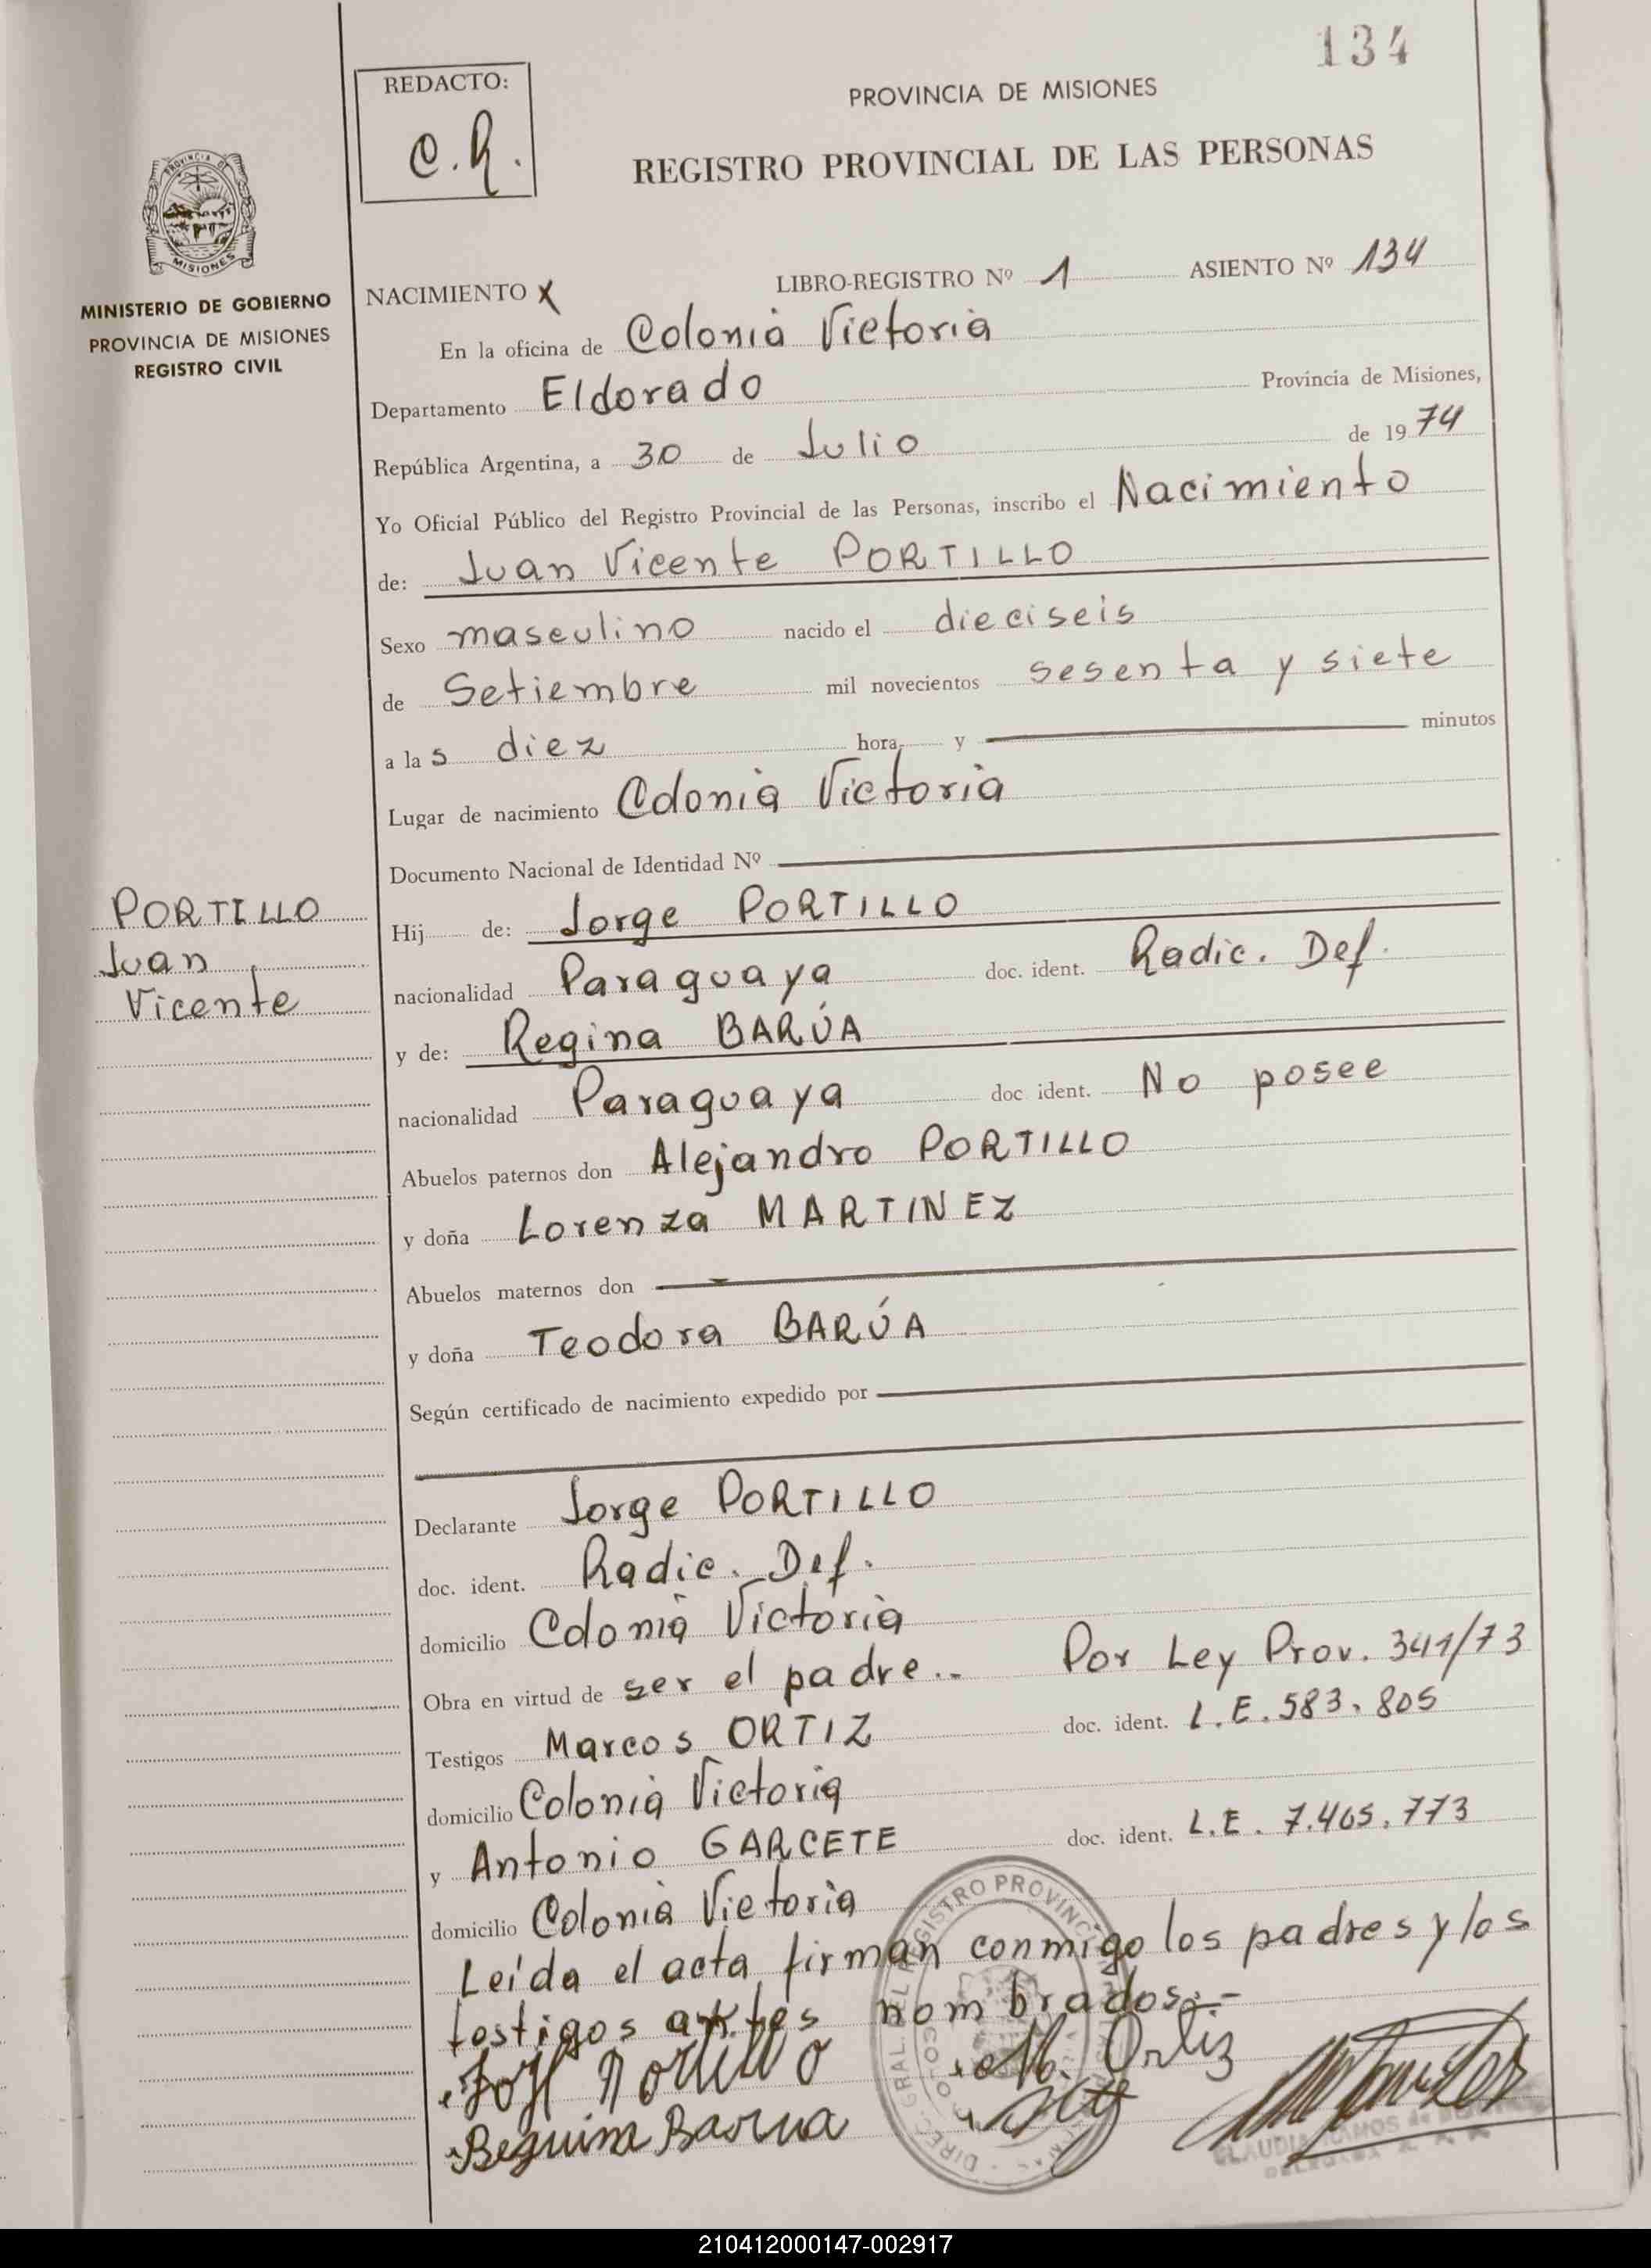 134
REDACTO:
C.R.
PROVINCIA DE MISIONES
REGISTRO PROVINCIAL DE LAS PERSONAS
PROVINCIA DE
MISIONES
MINISTERIO DE GOBIERNO
PROVINCIA DE MISIONES
REGISTRO CIVIL
NACIMIENTO X LIBRO-REGISTRO Nº 1 ASIENTO Nº 134
En la oficina de Colonia Victoria
Departamento Eldorado Provincia de Misiones,
República Argentina, a 30 de Julio de 1974
Yo Oficial Público del Registro Provincial de las Personas, inscribo el Nacimiento
de: Juan Vicente PORTILLO
Sexo masculino nacido el dieciseis
de Setiembre mil novecientos sesenta y siete
a las diez hora y minutos
Lugar de nacimiento Colonia Victoria
Documento Nacional de Identidad Nº
PORTILLO
Juan
Vicente
Hij de: Jorge PORTILLO
nacionalidad Paraguaya doc. ident. Radic. Def.
y de: Regina BARÚA
nacionalidad Paraguaya doc ident. No posee
Abuelos paternos don Alejandro PORTILLO
y doña Lorenza MARTINEZ
Abuelos maternos don
y doña Teodora BARÚA
Según certificado de nacimiento expedido por
Declarante Jorge PORTILLO
doc. ident. Radic. Def.
domicilio Colonia Victoria
Obra en virtud de ser el padre.. Por Ley Prov. 341/73
Testigos Marcos ORTIZ doc. ident. L.E. 583.805
domicilio Colonia Victoria
y Antonio GARCETE doc. ident. L.E. 7.465.773
domicilio Colonia Victoria
Leída el acta, firman conmigo los padres y los
testigos antes nombrados.-
Portillo M. Ortiz
Beguina Barua
210412000147-002917